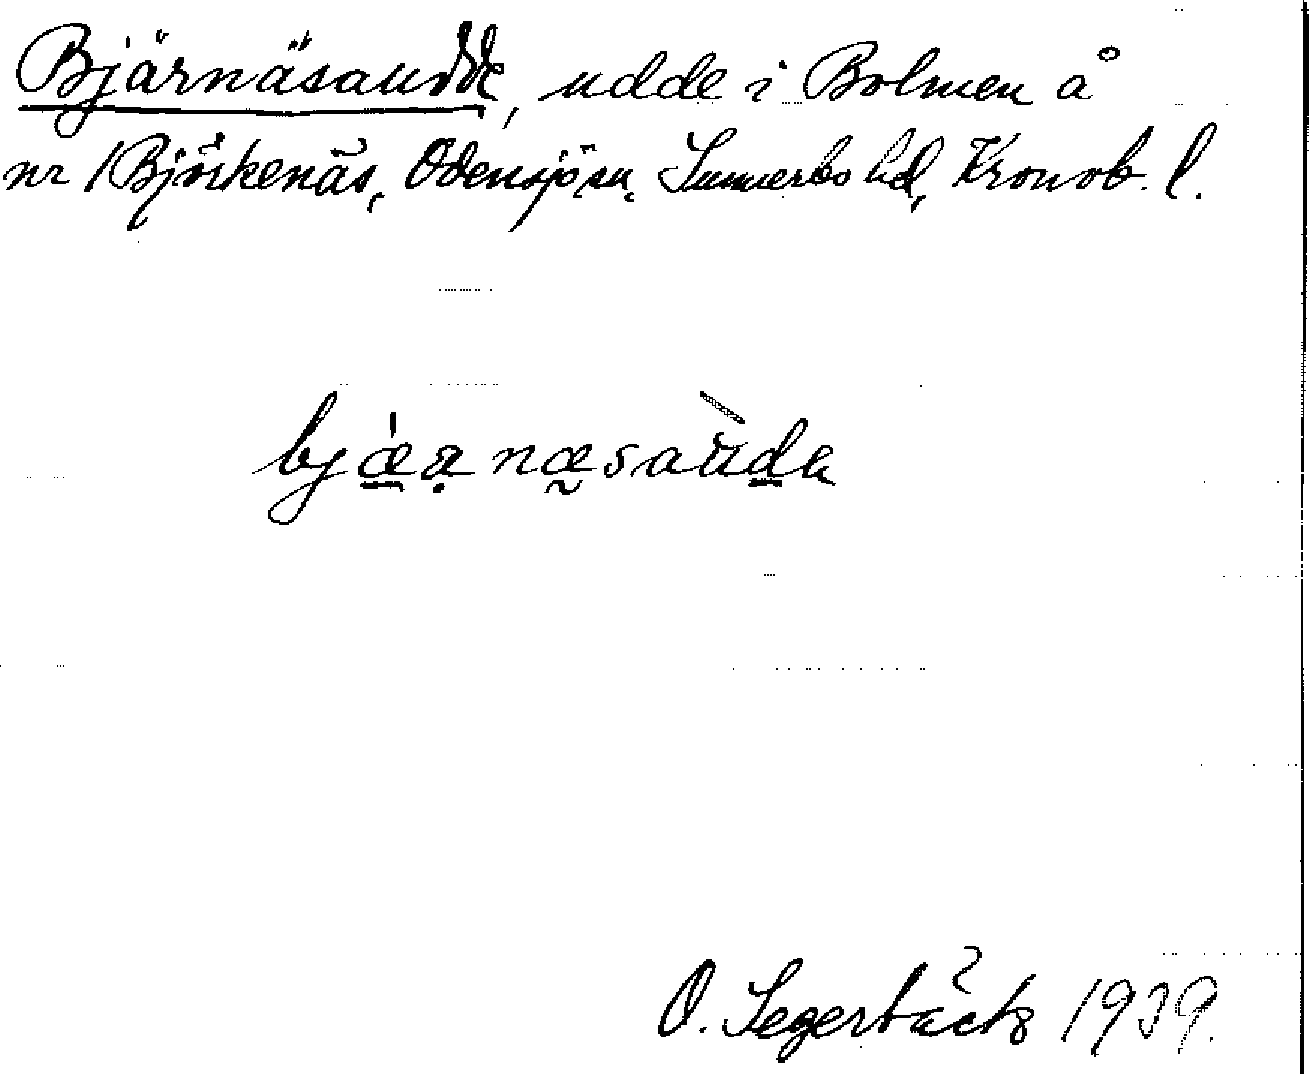 Bjärnäsaudde, udde i Bolmen å
nr 1 Björkenäs, Odensjö sn, Sunnerbo hd, Kronob. l.
bjæ̀ʀnæsaùdɐ
O. Segerbäck 1939.